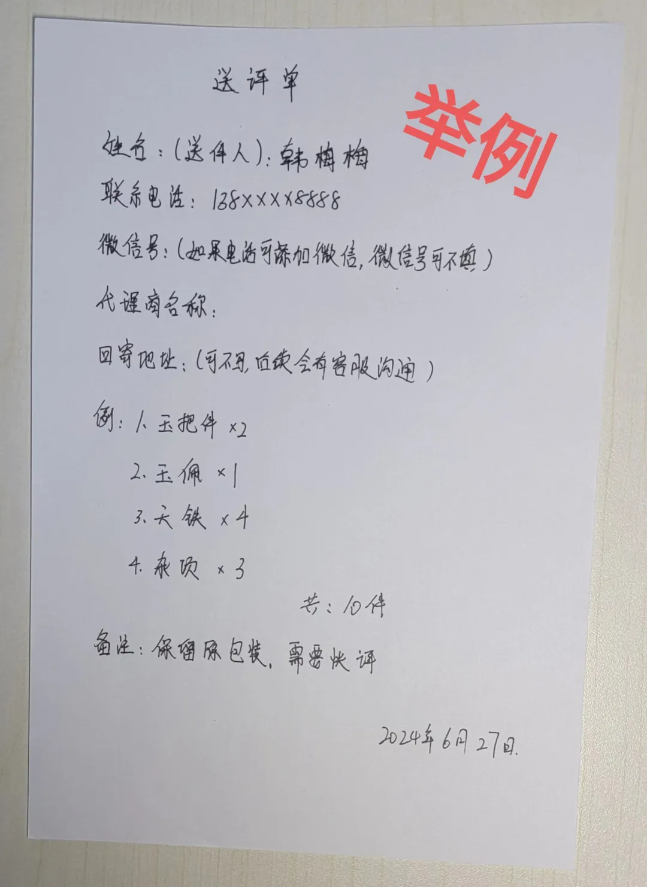 送评单
举例
姓名:(送件人):韩梅梅
联系电话:138XXXX8888
微信号:(如果电话可添加微信,微信号可不填)
代理商名称:
回寄地址:(可不写,后续会有客服沟通)
例:1.玉把件×2
2.玉佩×1
3.天铁×4
4.杂项×3
共:10件
备注:保留原包装,需要快评
2024年6月27日.